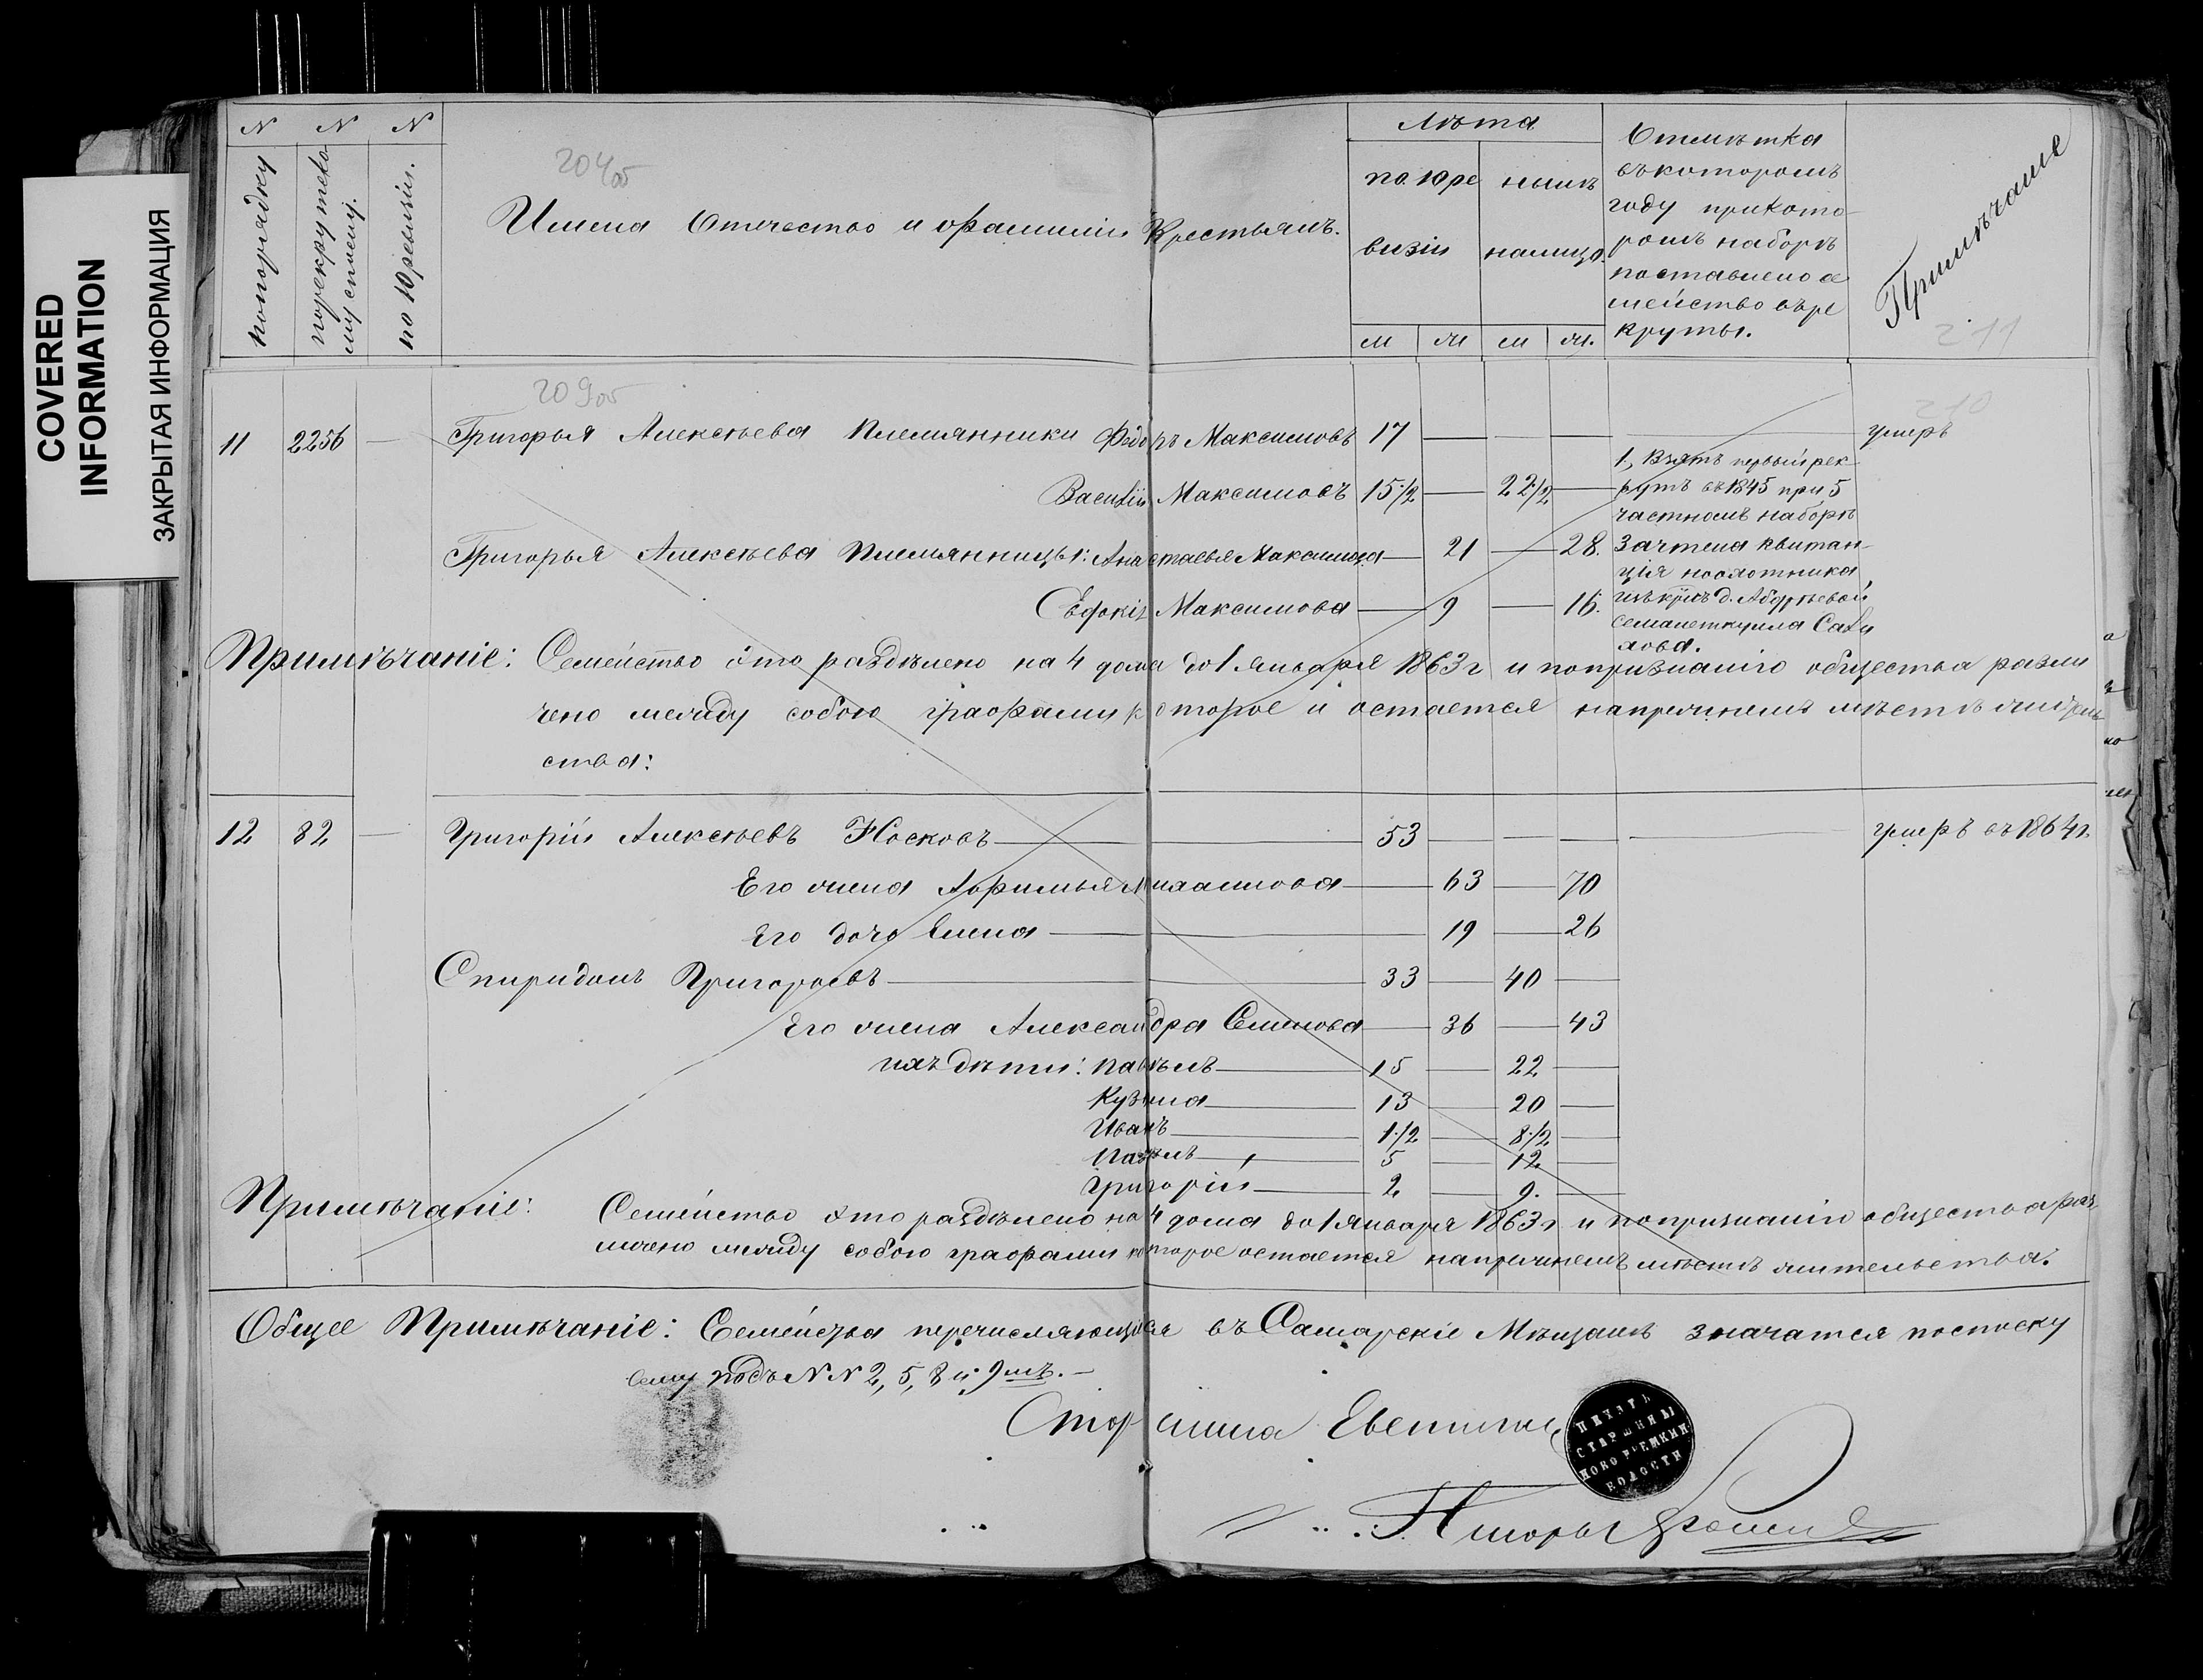 COVERED
INFORMATION
ЗАКРЫТАЯ ИНФОРМАЦИЯ
N N N
попорядку
порекрутско
му списку.
по 10 ревизіи.
204об
Имена Отчество и фамиліи Крестьянъ.
Лѣта
по 10 ре
визіи
нынѣ
налицо.
м ж м ж.
Отмѣтка
въкоторомъ
году прикото
ромъ наборѣ
поставлено се
мейство въре
круты.
Примѣчаніе
211
209об
210
11 2256 — Григорья Алексѣева Племянники Федоръ Максимовъ 17 — — — — умеръ
Василій Максимовъ 15 1/2 — 22 1/2 —
1, Взятъ первый рек
рутъ въ 1845 при 5
частномъ наборѣ
Григорья Алексѣева Племянницы: Анастасья Максимова — 21 — 28.
Зачтена квитан
ція
Евфокія Максимова — 9 — 16.
Примѣчаніе: Семейство это раздѣлено на 4 дома до 1 Января 1863 г и попризнанію общества разли
чено между собою графами которое и остается напрежнемъ мѣстѣ житель
ства:
12 82 — Григорій Алексѣевъ Носковъ — 53 — — — — умеръ въ 1864 г.
Его жена Афимья — 63 — 70
Его дочь Елена — 19 — 26
Спиридонъ Григорьевъ — 33 — 40 —
Его жена Александра Семенова — 36 — 43
ихъ дѣти: Павелъ — 15 — 22 —
Кузьма — 13 — 20 —
Иванъ — 1 1/2 — 8 1/2 —
Павелъ — 5 — 12 —
Григорій — 2 — 9. —
Примѣчаніе: Семейство это раздѣлено на 4 дома до 1 Января 1863 г и попризнанію общества раз
личено между собою графами которое остается напрежнемъ мѣстѣ жительства.
Общее Примѣчаніе: Семейства перечисляющіяся въ Самарскіе Мѣщане значатся посписку
сему подъ N N 2, 5, 8 и 9 мъ. —
Старшина
ПЕЧАТЬ
СТАРШИНЫ
ВОЛОСТИ